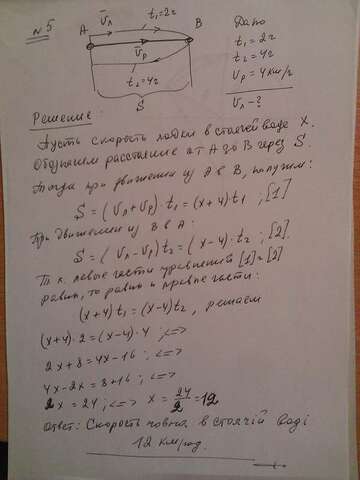 №5
A V̄л t₁=2г B
V̄р
t₂=4г
S
Дано
t₁=2г
t₂=4г
Vр=4км/г
Vл-?
Решение:
Пусть скорость лодки в стоячей воде X.
Обозначим расстояние от A до B через S.
Тогда при движении из A в B, получим:
S=(Vл+Vр)·t₁=(x+4)t₁ ; [1]
При движении из B в A:
S=(Vл-Vр)t₂=(x-4)·t₂ ; [2].
Т. к. левые части уравнений [1] и [2]
равны, то равны и правые части:
(x+4)t₁=(x-4)t₂, решаем
(x+4)·2=(x-4)·4 ;<=>
2x+8=4x-16 ;<=>
4x-2x=8+16 ;<=>
2x=24 ;<=> x=24/2=12
Ответ: Скорость човна в стоячій воді
12 км/год.